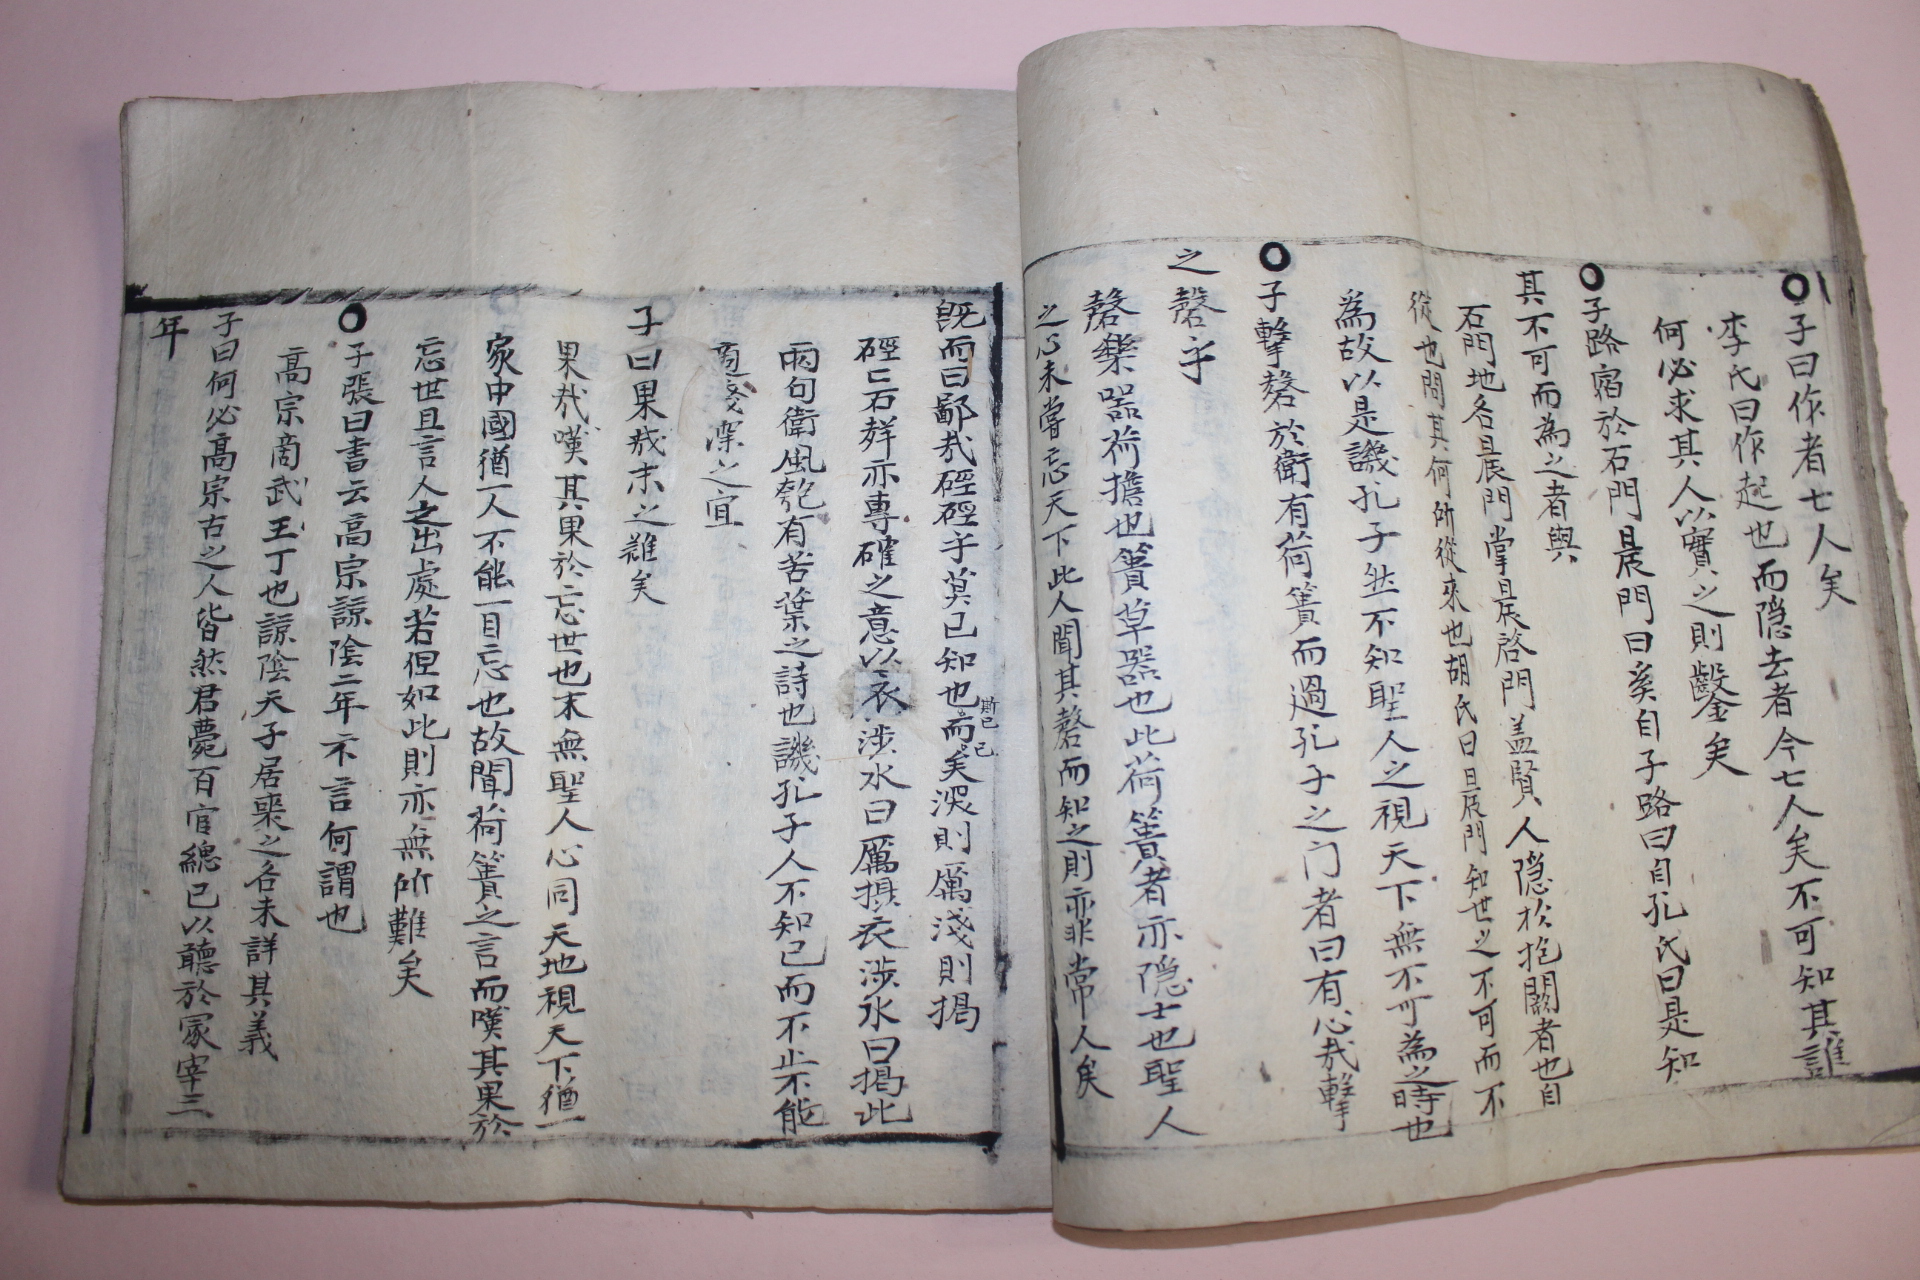 子曰作者七人矣
李氏曰作起也而隐去者今七人矣不可知其誰
何必求其人以實之則鑿矣
子路宿於石門晨門曰奚自子路曰自孔氏曰是知
其不可而為之者與
石門地名晨門掌晨啓門盖賢人隐於抱關者也自
從也問其何所從來也胡氏曰晨門知世之不可而不
為故以是譏孔子然不知聖人之視天下無不可為之時也
子擊磬於衛有荷簣而過孔子之门者曰有心哉擊
之磬乎
磬樂器荷擔也簣草器也此荷簣者亦隐士也聖人
之心未嘗忘天下此人聞其磬而知之則亦非常人矣
既而曰鄙哉硜硜乎莫己知也斯已而已矣深則厲淺則揭
硜硜石聲亦專確之意以衣涉水曰厲摂衣涉水曰揭此
兩句衛風匏有苦葉之詩也譏孔子人不知己而不止不能
適淺深之宜
子曰果哉末之難矣
果哉嘆其果於忘世也末無聖人心同天地視天下猶一
家中國猶一人不能一日忘也故聞荷簣之言而嘆其果於
忘世且言人之出處若但如此則亦無所難矣
子張曰書云高宗諒陰三年不言何謂也
高宗商武王丁也諒陰天子居喪之名未詳其義
子曰何必高宗古之人皆然君薨百官總己以聽於冢宰三
年